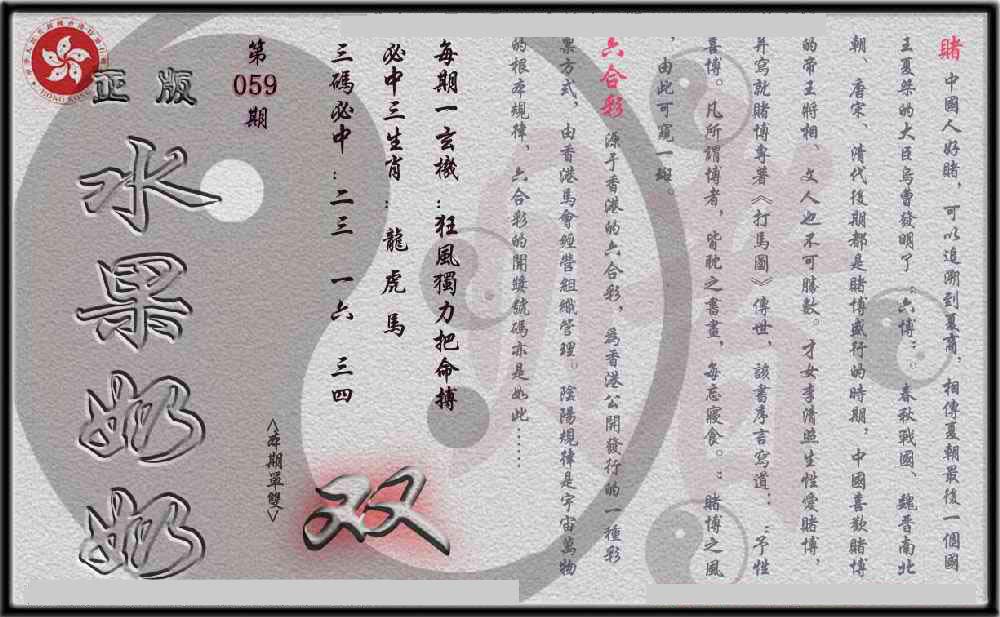 賭 中國人好賭，可以追溯到夏商．相傳夏朝最後一個國
王夏桀的大臣烏曹發明了〝六博〞．春秋戰國、魏晋南北
朝、唐宋、清代後期都是賭博盛行的時期，中國喜歡賭博
的帝王將相、文人也不可勝數。才女李清照生性愛賭博，
并寫就賭博專著《打馬圖》傳世，該書序言寫道：〝予性
喜博。凡所謂博者，皆耽之書畫，每忘寢食。〞賭博之風
，由此可窺一斑。
六合彩 源于香港的六合彩，為香港公開發行的一種彩
票方式，由香港馬會經營組織管理。陰陽規律是宇宙萬物
的根本規律，六合彩的開獎號碼亦是如此……
每期一玄機：狂風獨力把命搏
必中三生肖：龍虎馬
三碼必中：二三 一六 三四
第059期
<本期單雙>
双
正版
水果奶奶